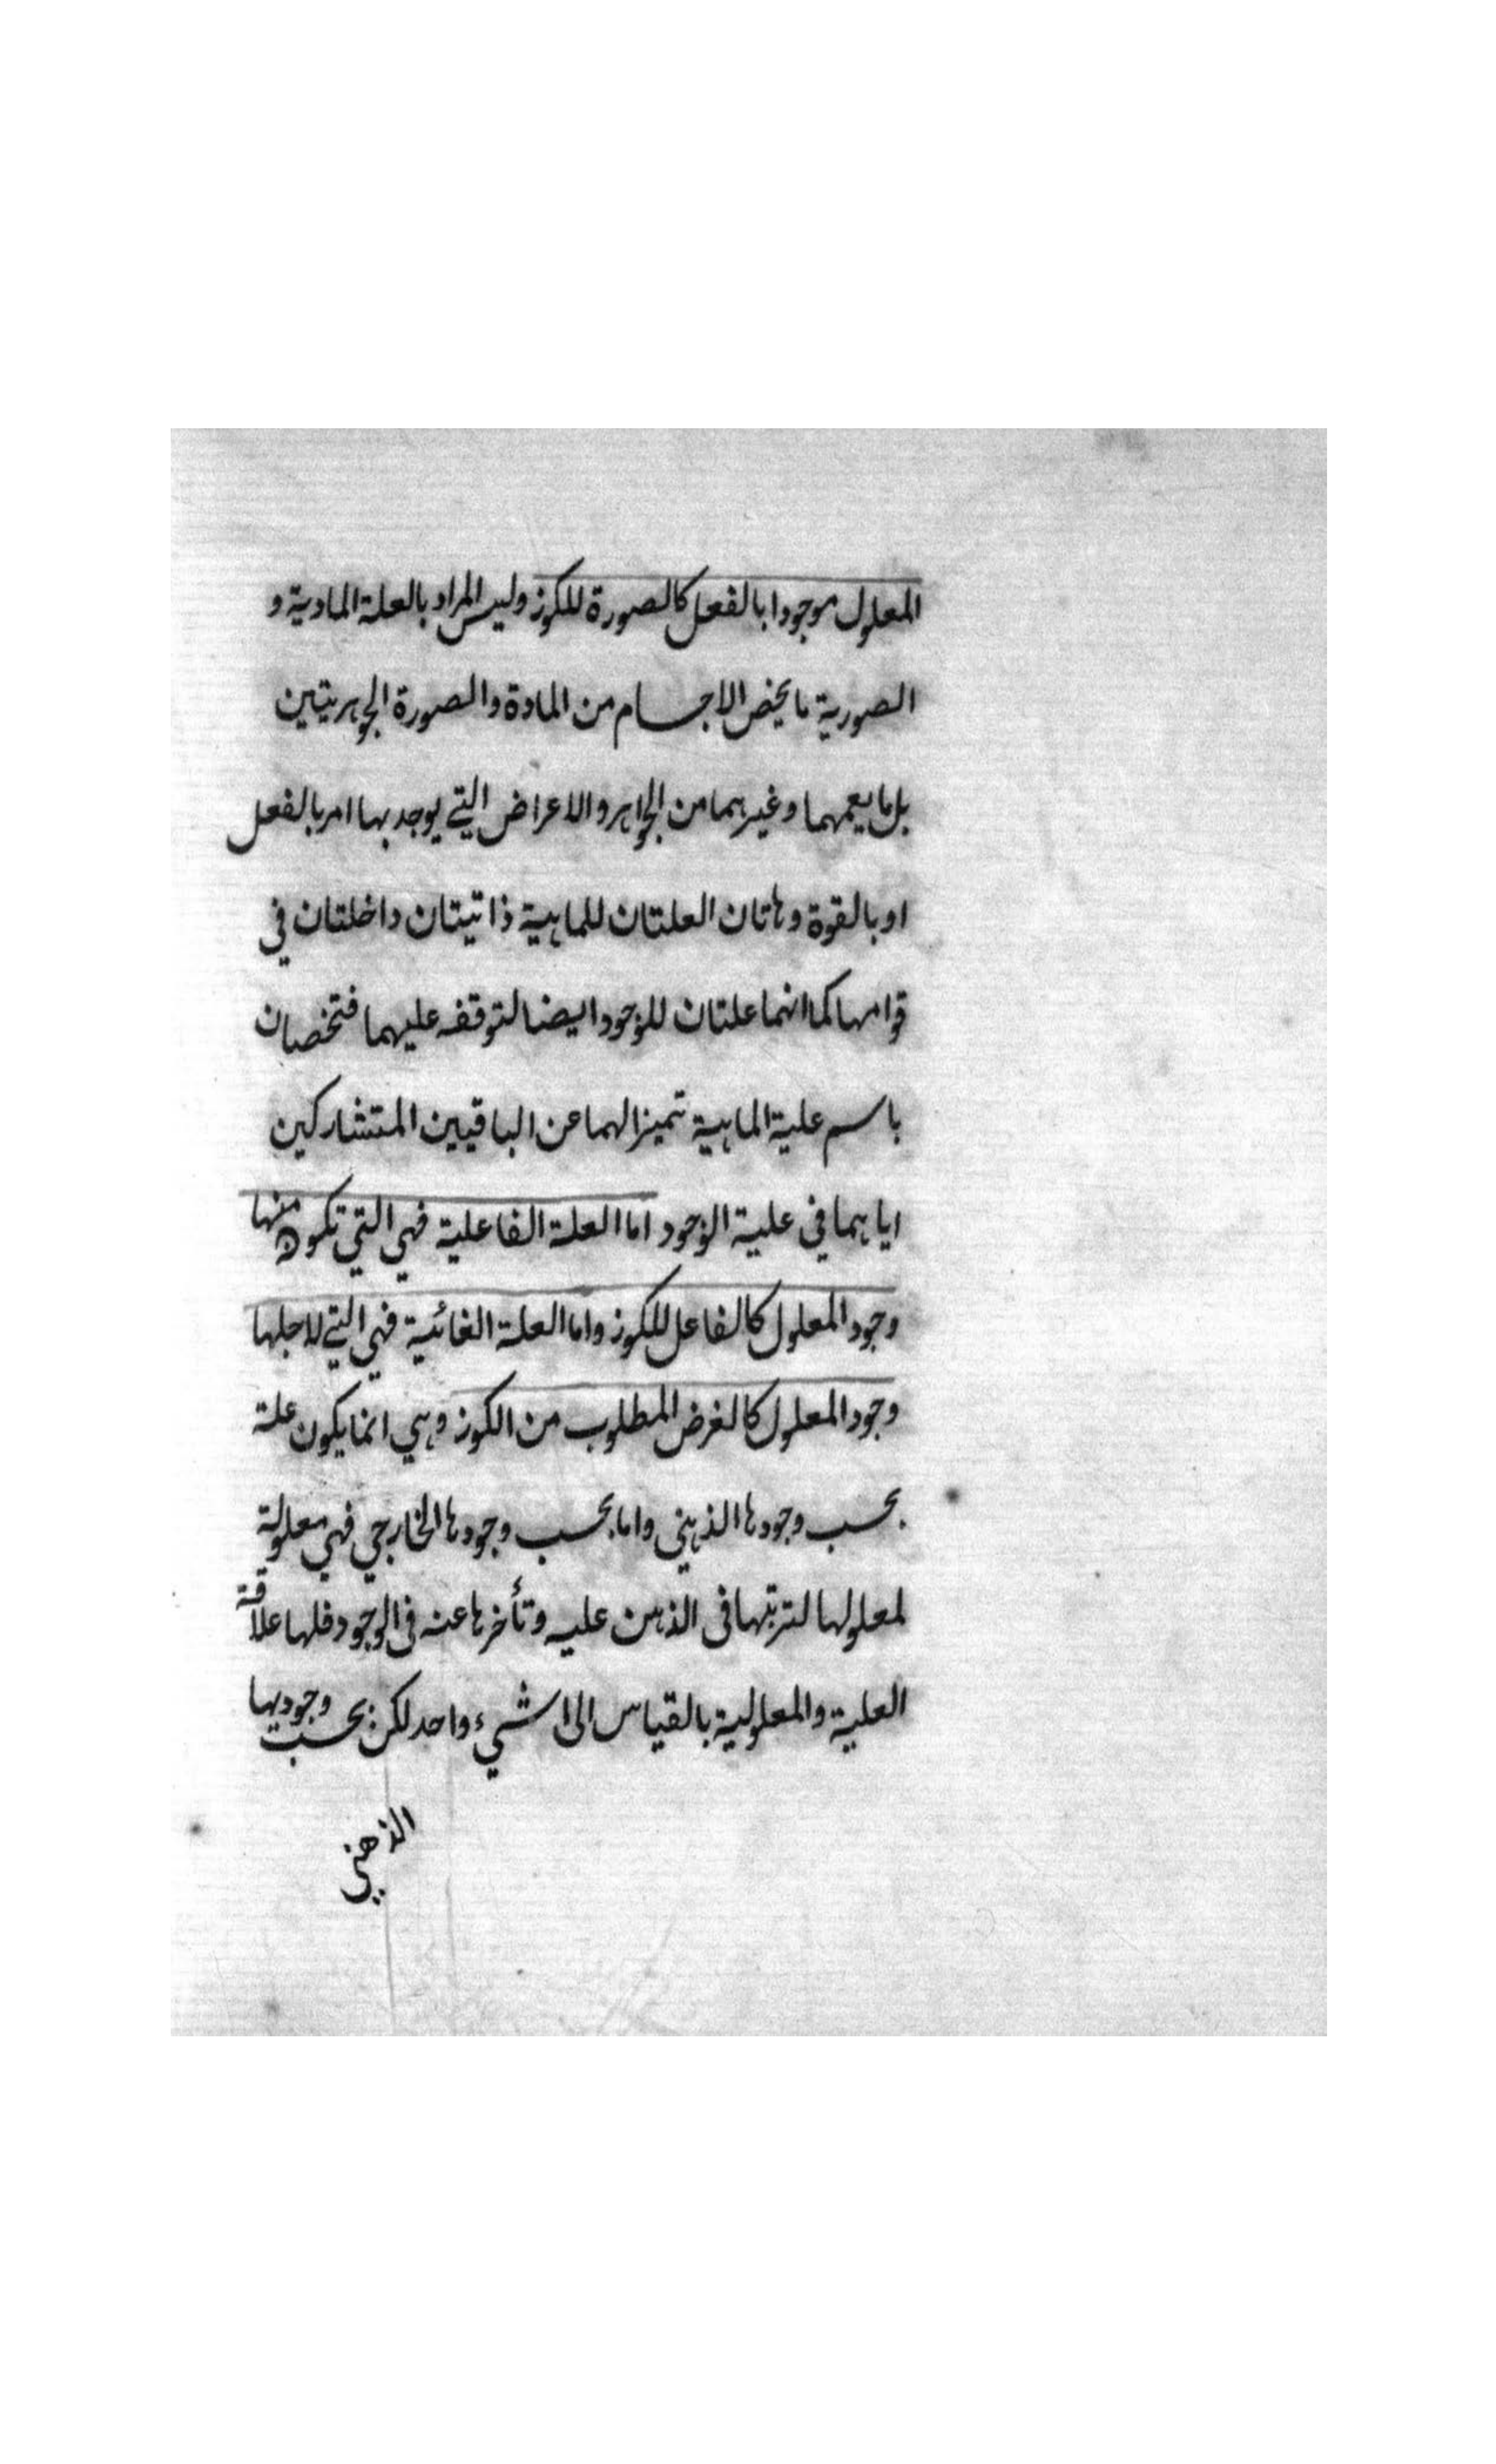 المعلول موجودا بالفعل كالصورة للكوز وليس المراد بالعلة المادية و
الصورية ما يخص الاجسام من المادة والصورة الجوهريتين
بل ما يعمهما وغيرهما من الجواهر والاعراض التي يوجد بها امر بالفعل
او بالقوة وهاتان العلتان للماهية ذاتيتان داخلتان في
قوامها كما انهما علتان للوجود ايضا لتوقفه عليهما فتخصان
باسم علية الماهية تميزا لهما عن الباقيين المتشاركين
اياهما في علية الوجود اما العلة الفاعلية فهي التي تكون منها
وجود المعلول كالفاعل للكوز واما العلة الغائية فهي التي لاجلها
وجود المعلول كالغرض المطلوب من الكوز وهي انما يكون علة
بحسب وجودها الذهني واما بحسب وجودها الخارجي فهي معلولة
لمعلولها لترتبها في الذهن عليه وتأخرها عنه في الوجود فلها علاقة
العلية والمعلولية بالقياس الى شيء واحد لكن بحسب وجوديها
الذهني